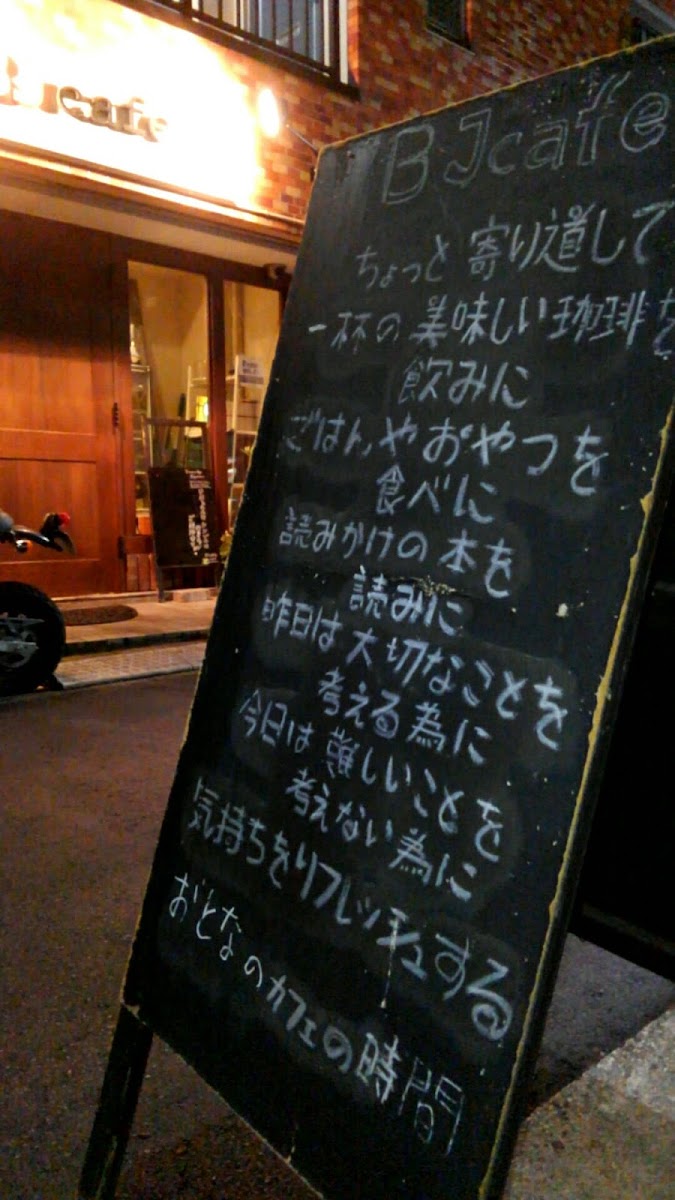 BJcafe
BJcaffe
ちょっと寄り道して
一杯の美味しい珈琲を
飲みに
ごはんやおやつを
食べに
読みかけの本を
読みに
昨日は大切なことを
考える為に
今日は難しいことを
考えない為に
気持ちをリフレッシュする
おとなのカフェの時間